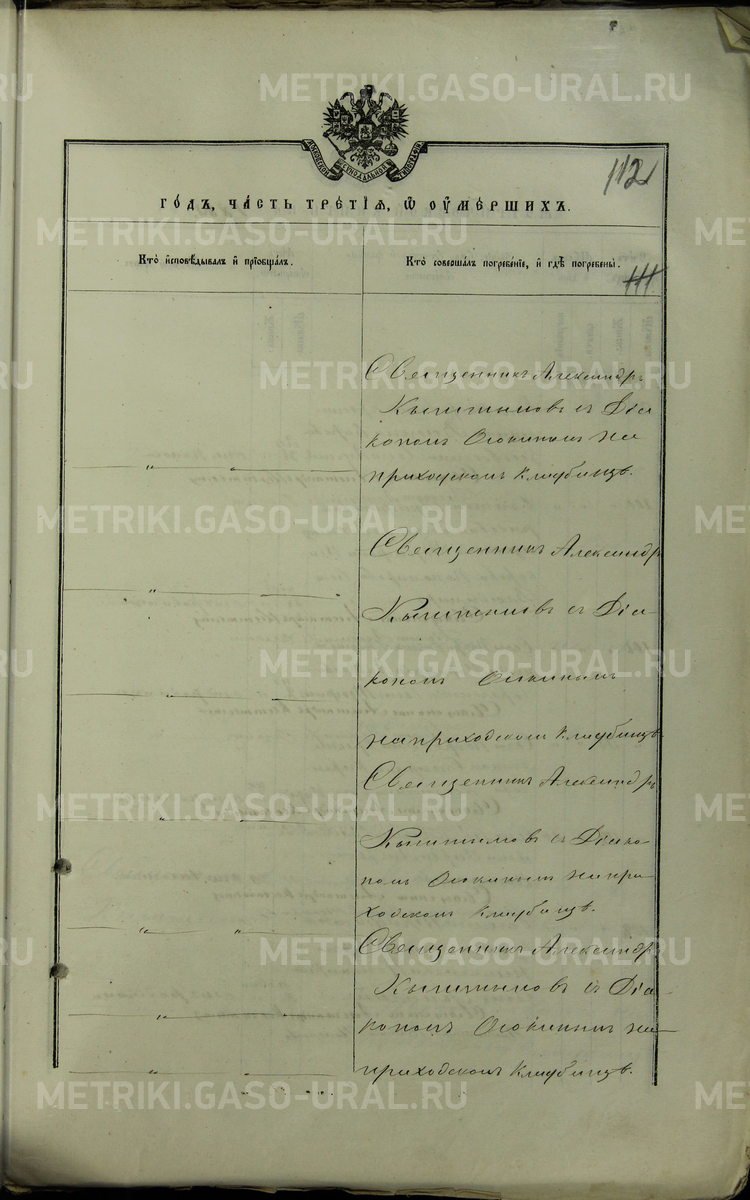 METRIKI.GASO-URAL.RU
МОСКОВСКОЙ СУНОДАЛЬНОЙ ТИПОГРАФІИ
112
ГО́ДЪ, ЧА́СТЬ ТРЕ́ТІѦ, Ѿ ОУ҆МЕ́РШИХЪ.
Кто̀ и҆сповѣ́дывалъ и҆ прїѡбща́лъ.
Кто̀ соверша́лъ погребе́нїе, и҆ гдѣ̀ погребены̀.
111
Священникъ Александръ
Кыштымовъ съ Діа
кономъ Осокинымъ на
приходскомъ Кладбищѣ.
Священникъ Александръ
Кыштымовъ съ Діа-
кономъ Осокинымъ
на приходскомъ Кладбищѣ
Священникъ Александръ
Кыштымовъ съ Діако-
номъ Осокинымъ на при-
ходскомъ кладбищѣ.
Священникъ Александръ
Кыштымовъ съ Діа-
кономъ Осокинымъ на
приходскомъ Кладбищѣ.